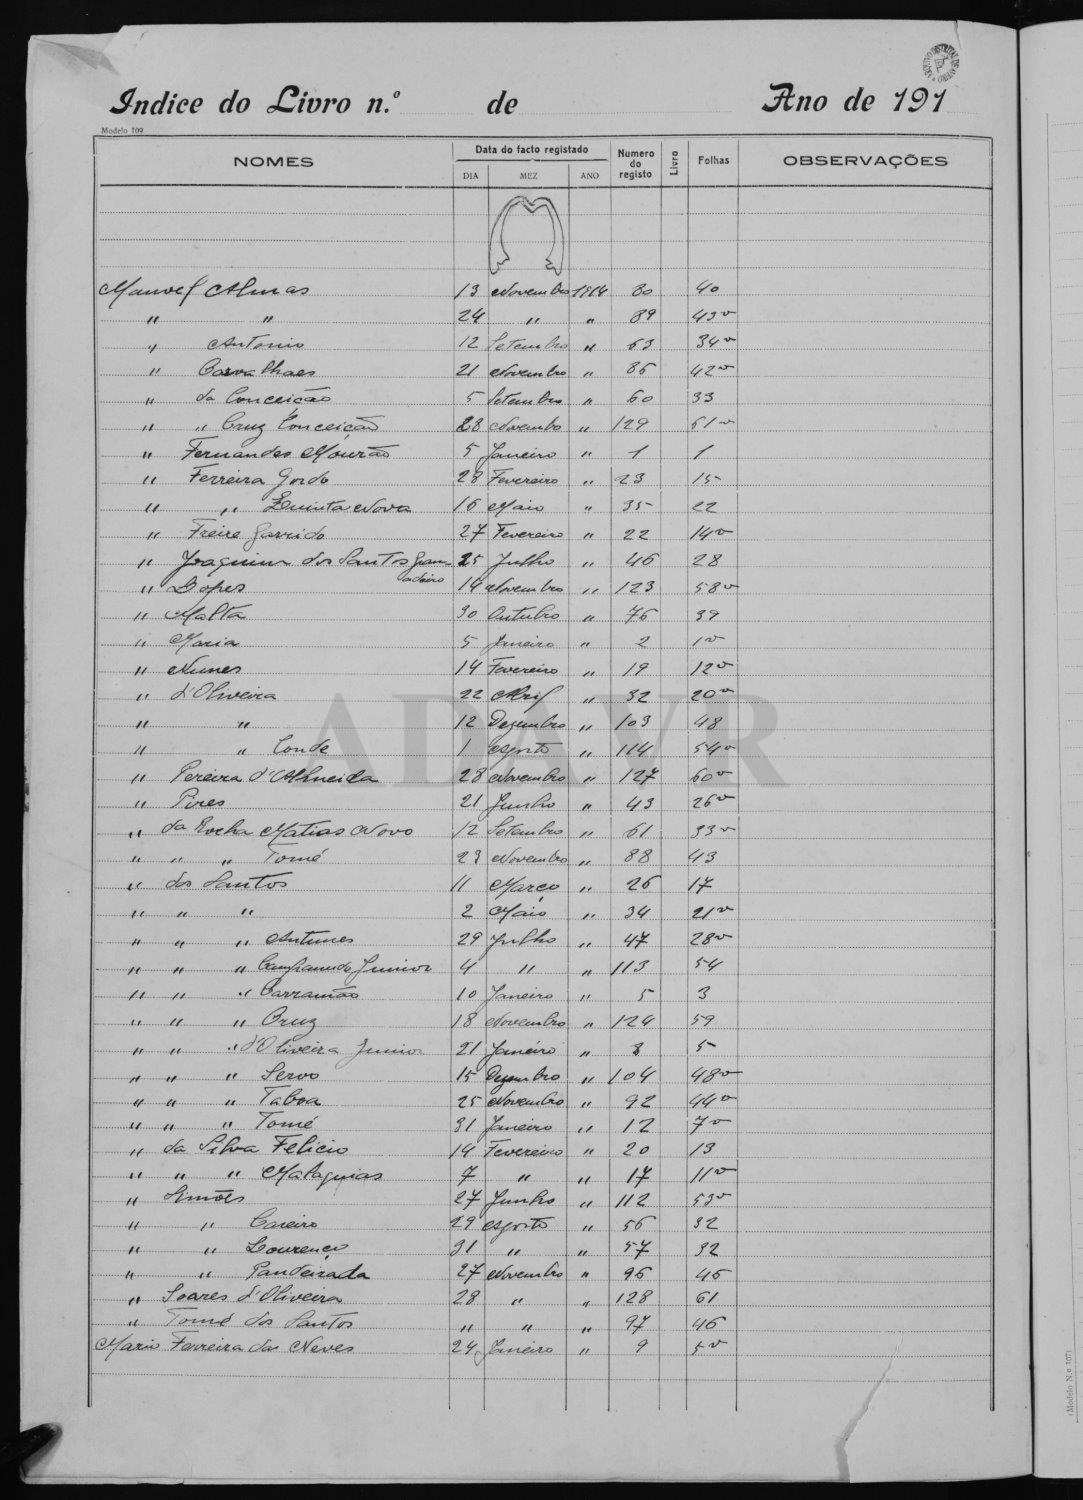 ARQUIVO DISTRITAL DE AVEIRO
Indice do Livro n.º de Ano de 191
Modelo 109
NOMES Data do facto registado Numero do registo Livro Folhas OBSERVAÇÕES
DIA MEZ ANO
M
Manoel Almas 13 Novembro 1914 80 40
" " 24 " " 89 43v
" Antonio 12 Setembro " 63 34v
" Carvalhaes 21 Novembro " 86 42v
" da Conceição 5 Setembro " 60 33
" " Cruz Conceição 28 Novembo " 129 61v
" Fernandes Mourão 5 Janeiro " 1 1
" Ferreira Gordo 28 Fevereiro " 23 15
" " Quinta Nova 16 Maio " 35 22
" Freire Garrido 27 Fevereiro " 22 14v
" Joaquim dos Santos 25 Julho " 46 28
" Lopes 14 Novembro " 123 58v
" Malta 30 Outubro " 76 39
" Maria 5 Janeiro " 2 1v
" Nunes 14 Fevereiro " 19 12v
" d'Oliveira 22 Abril " 32 20v
" " 12 Dezembro " 103 48
" " Conde 1 Agosto " 114 54v
" Pereira d'Almeida 28 Novembro " 127 60v
" Pires 21 Junho " 43 26v
" da Rocha Matias Novo 12 Setembro " 61 33v
" " " Tomé 23 Novembro " 88 43
" dos Santos 11 Março " 26 17
" " " 2 Maio " 34 21v
" " " Antunes 29 Julho " 47 28v
" " " Junior 4 " " 113 54
" " " Carramão 10 Janeiro " 5 3
" " " Cruz 18 Novembro " 124 59
" " " d'Oliveira Junior 21 Janeiro " 8 5
" " " Servo 15 Dezembro " 104 48v
" " " Taboa 25 Novembro " 92 44v
" " " Tomé 31 Janeiro " 12 7v
" da Silva Felicio 14 Fevereiro " 20 13
" " " Malaquias 7 " " 17 11v
" Simões 27 Junho " 112 53v
" " Careiro 29 Agosto " 56 32
" " Lourenço 31 " " 57 32
" " Pandeirada 27 Novembro " 96 46
" Soares d'Oliveira 28 " " 128 61
" Tomé dos Santos " " " 97 46
Mario Ferreira das Neves 24 Janeiro " 9 5v
ADAVR
(Modelo N.o 107)